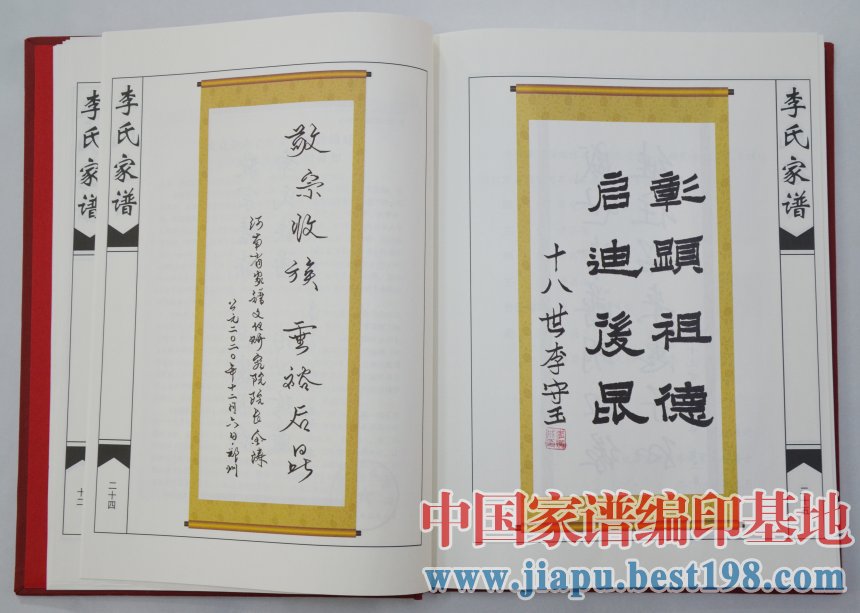 李氏家谱
十二
李氏家谱
二十四
敬宗收族 垂裕后昆
河南省家谱文化研究院院长金臻
公元二〇二〇年十二月六日·郑州
彰顯祖德
启迪後昆
十八世李守玉
李氏家谱
中国家谱编印基地
www.jiapu.best198.com